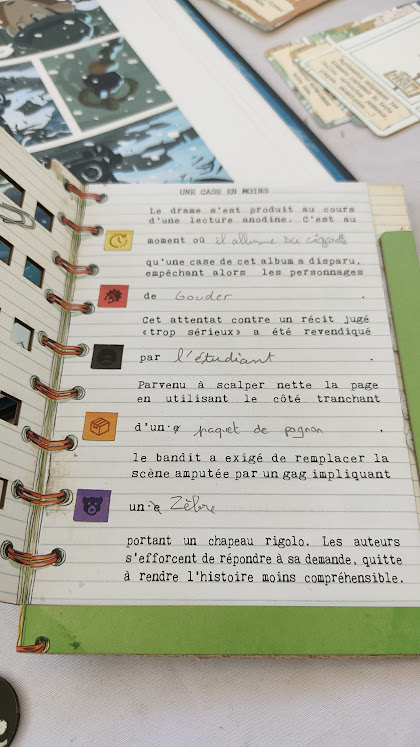 UNE CASE EN MOINS
Le drame s'est produit au cours
d'une lecture anodine. C'est au
moment où il allume sa cigarette
qu'une case de cet album a disparu,
empêchant alors les personnages
de bouder .
Cet attentat contre un récit jugé
«trop sérieux» a été revendiqué
par l'étudiant .
Parvenu à scalper nette la page
en utilisant le côté tranchant
d'un·e paquet de pognon .
le bandit a exigé de remplacer la
scène amputée par un gag impliquant
un·e Zèbre
portant un chapeau rigolo. Les auteurs
s'efforcent de répondre à sa demande, quitte
à rendre l'histoire moins compréhensible.